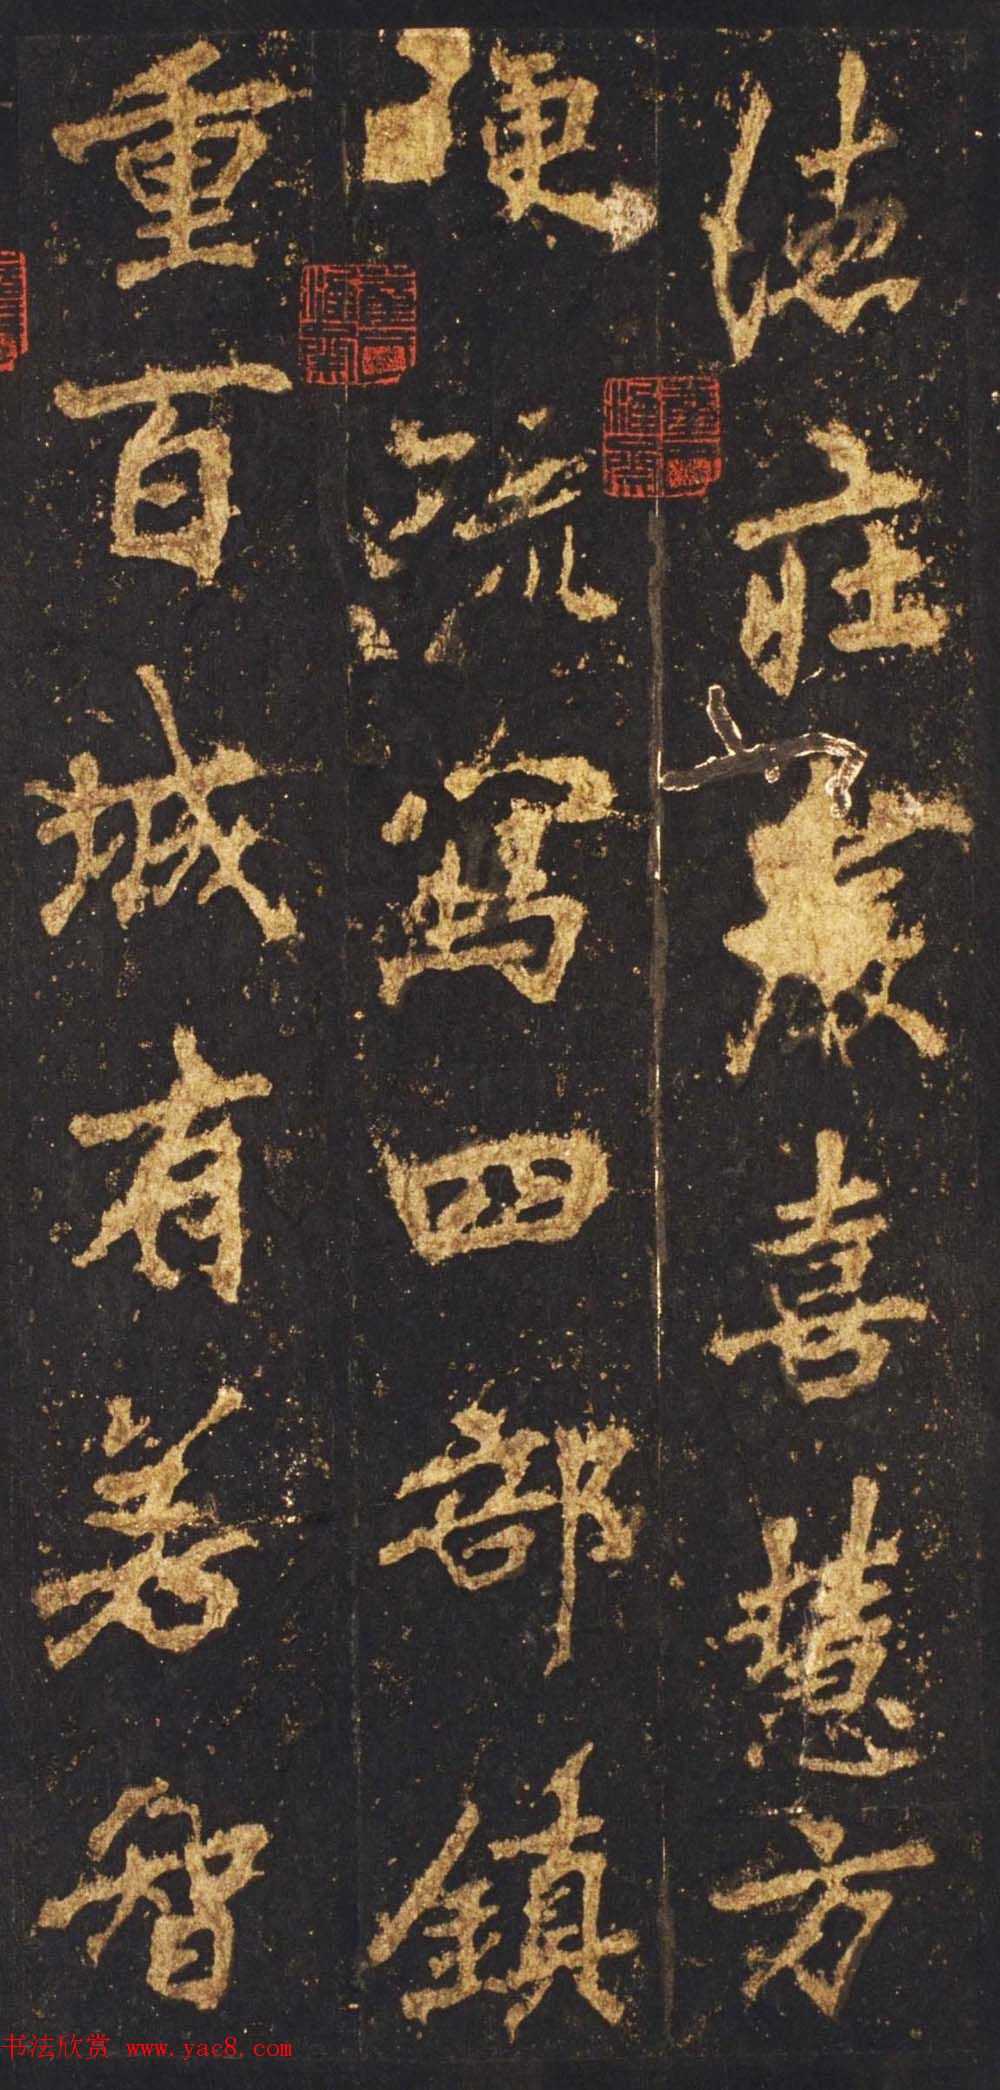 德莊嚴喜慧方
便流寫四部鎮
重百城有若智
书法欣赏 www.yac8.com